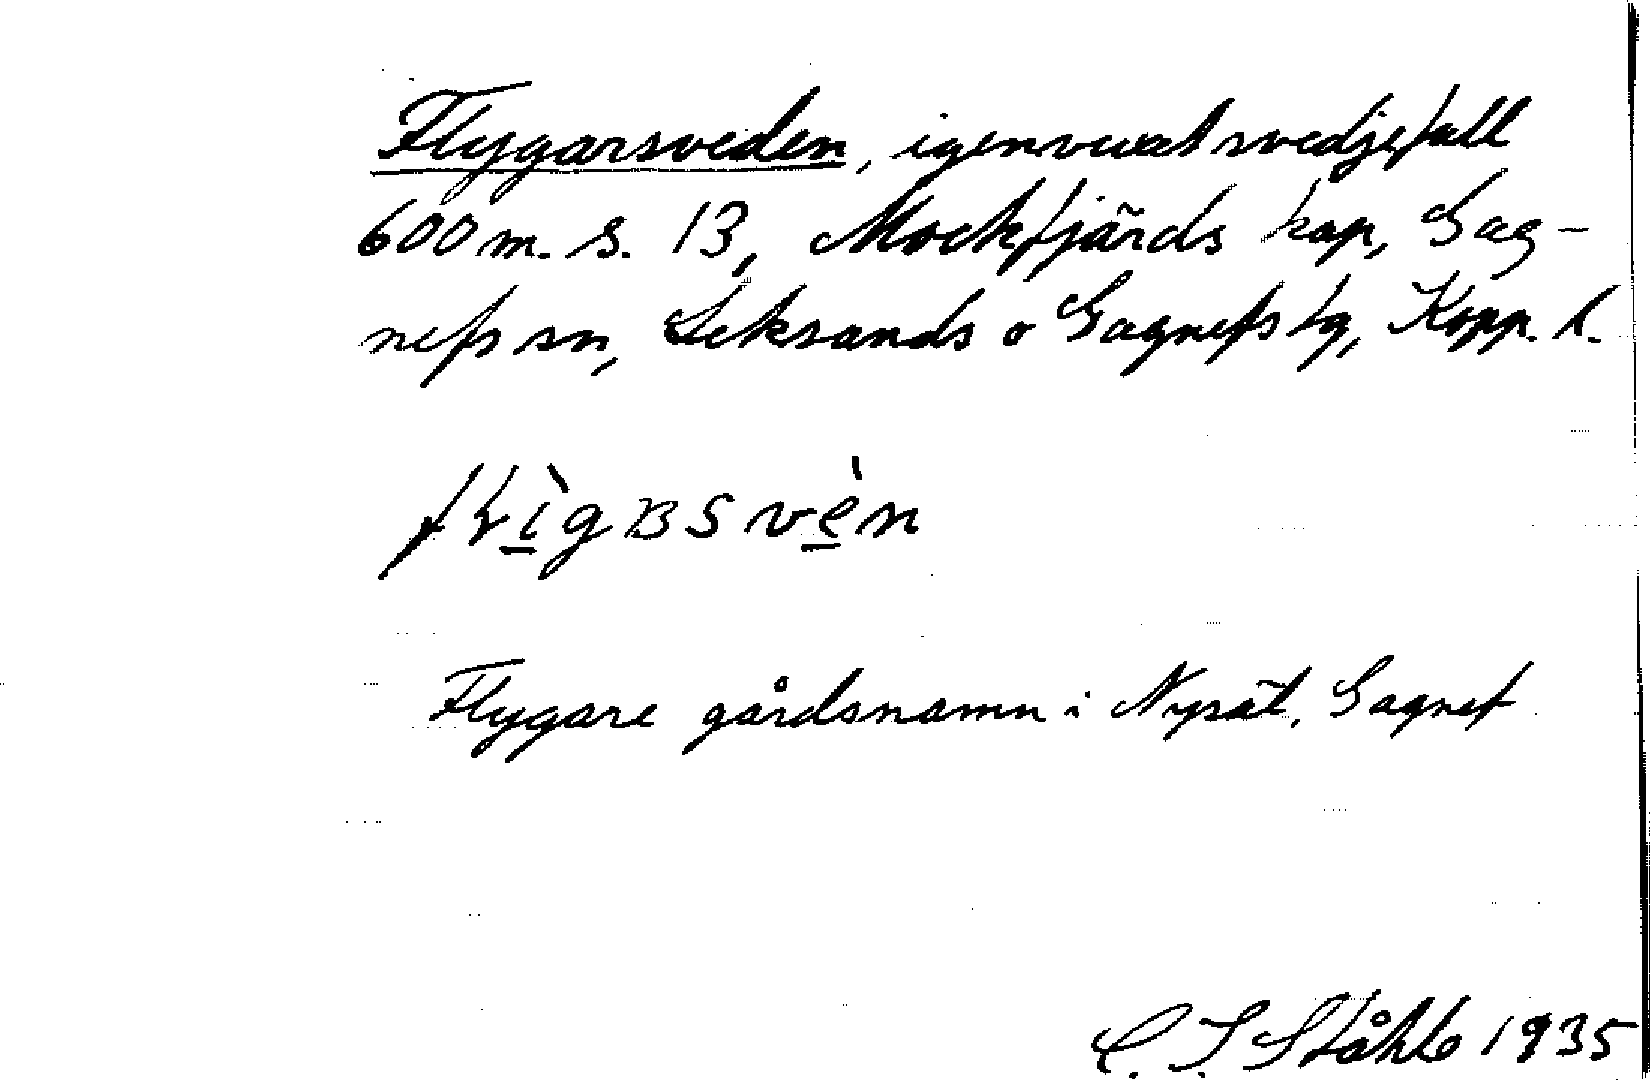 Flygarsveden, igenvuxet svedjefall
600 m. S. 13, Mockfjärds kap, Gag-
nefs sn, Leksands o Gagnefs tg, Kopp. l.
Flygare gårdsnamn i Nysät, Gagnef
1935